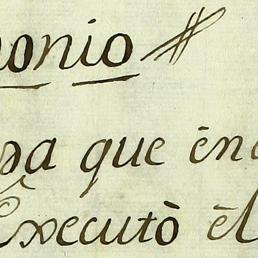 onio
pa que èn
Executò èl